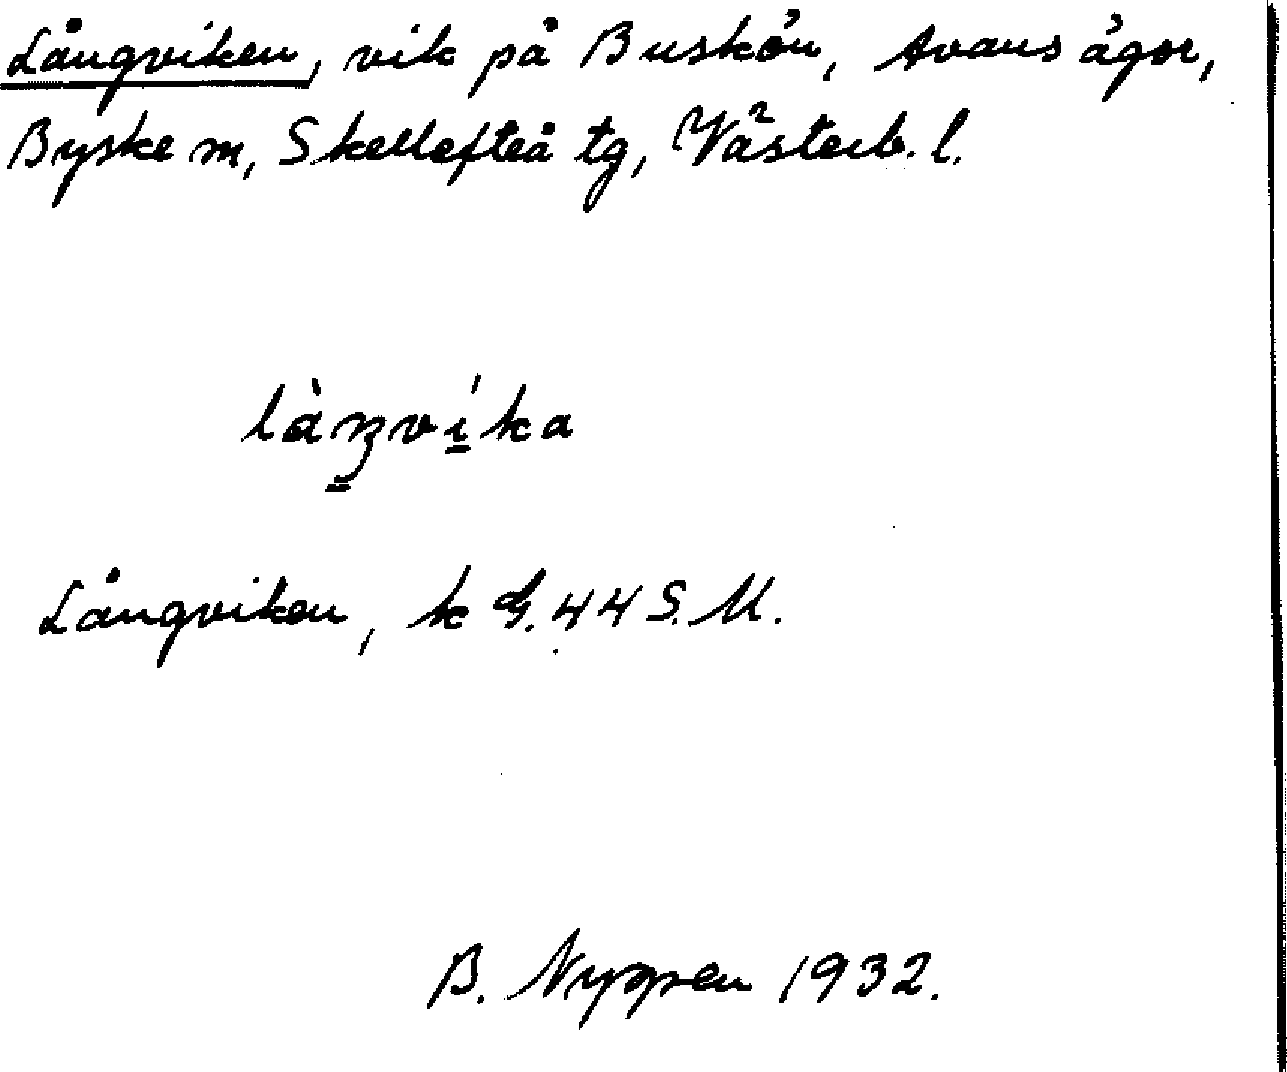 Långviken, vik på Buskön, Avans ägor,
Byske sn, Skellefteå tg, Västerb. l.
làŋví̱ka
Långviken, k G. 44 S. U.
B. Nyppen 1932.